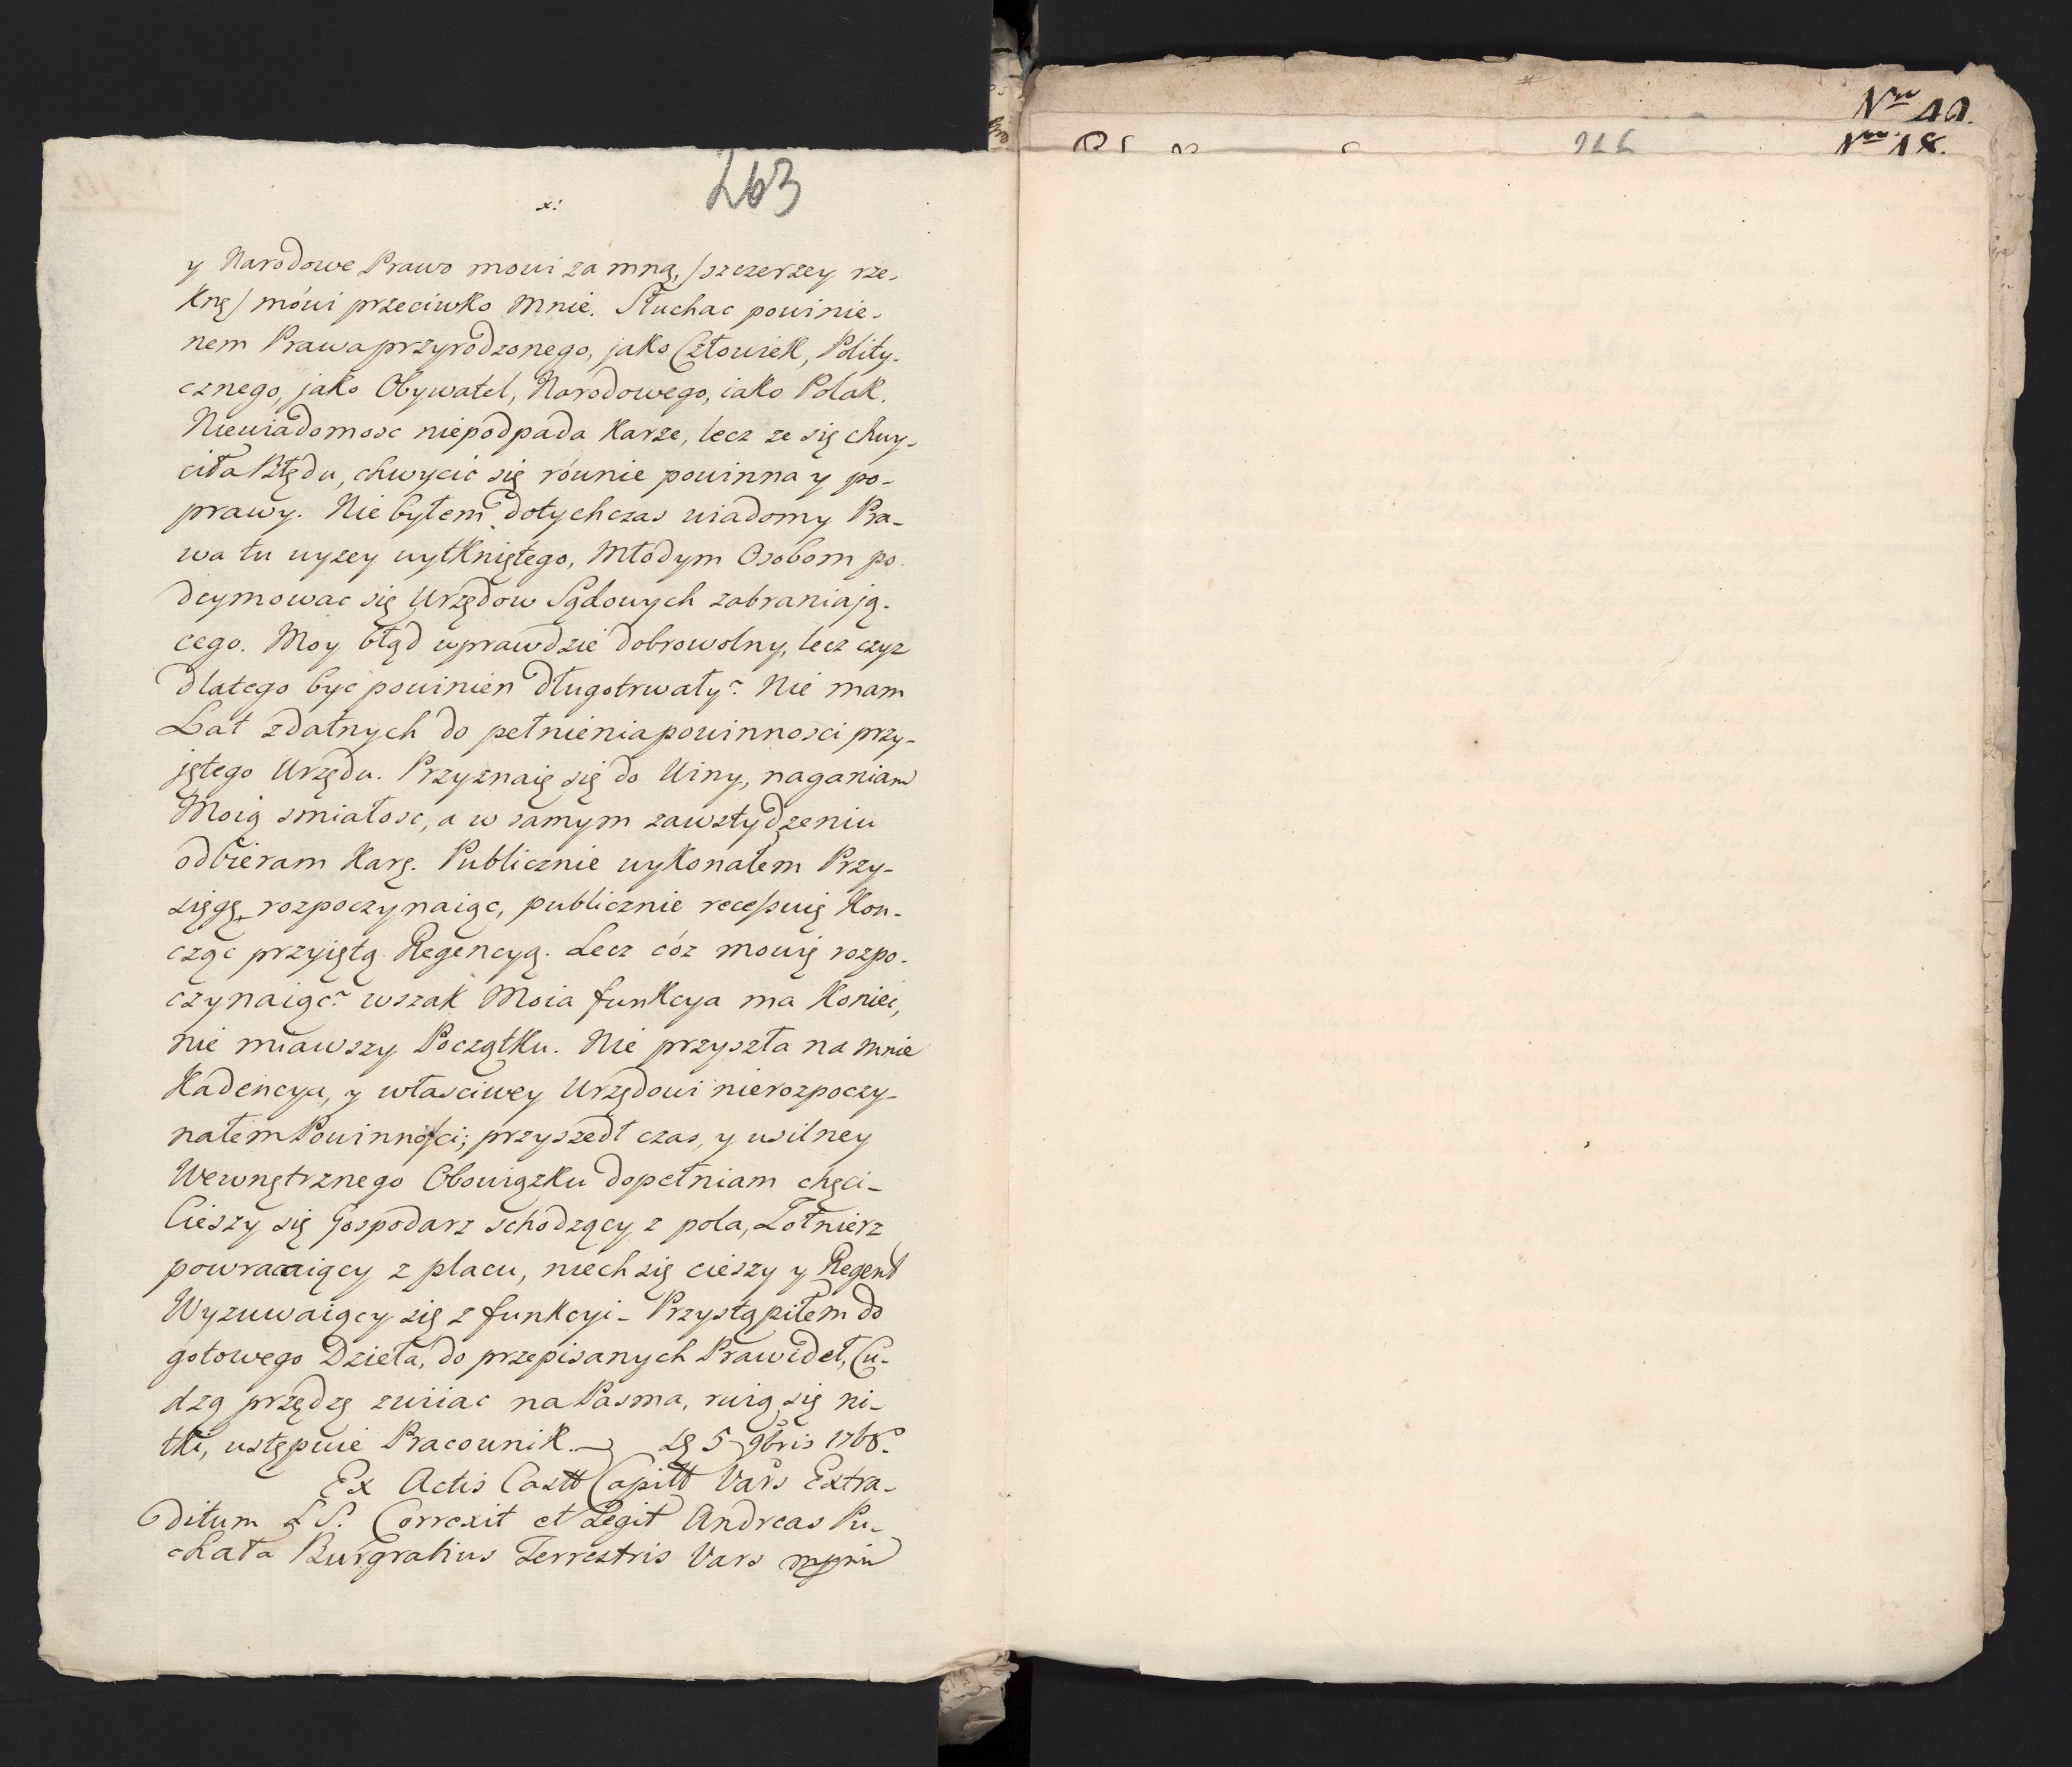 263
x:
y Narodowe Prawo mowi za mną, /szczerzey rze-
knę/ mówi przeciwko mnie. Słuchac powinie-
nem Prawa przyrodzonego, jako Człowiek, Polity-
cznego, jako Obywatel, Narodowego, iako Polak.
Niewiadomosc niepodpada karze, lecz ze się chwy-
ciła Błędu, chwycic się równie powinna y po-
prawy. Nie byłem dotychczas wiadomy Pra-
wa tu wyzey wytkniętego, Młodym Osobom po-
deymowac się Urzędow Sądowych zabraniają-
cego. Moy błąd wprawdzie dobrowolny, lecz czyz
dlatego byc powinien długotrwały? Nie mam
Lat zdatnych do pełnienia powinnosci przy-
jętego Urzędu. Przyznaię się do Winy, naganiam
Moią smiałosc, a w samym zawstydzeniu
odbieram Karę. Publicznie wykonałem Przy-
sięgę rozpoczynaiąc, publicznie recessuię Kon-
cząc przyiętą Regencyą. Lecz cóz mowię rozpo-
czynaiąc? wszak Moia funkcya ma Koniec,
nie miawszy Początku. Nie przyszła na mnie
Kadencya, y własciwey Urzędowi nierozpoczy-
nałem Powinności; przyszedł czas, y usilney
Wewnętrznego Obowiązku dopełniam chęci_
Cieszy się Gospodarz schodzący z pola, Żołnierz
powracaiący z placu, niech się cieszy y Regent
Wyzuwaiący się z funkcyi_ Przystąpiłem do
gotowego Dzieła, do przepisanych Prawideł, Cu-
dzą przędzę zwiiac na Pasma, rwią się ni-
tki, ustępuie Pracownik. Lę 5 9bris 1768.
Ex Actis Castt Capitt Vars Extra-
ditum LS. Correxit et Legit Andreas Pu-
chała Burgrabius Terrestris Vars mppria
Nro
Nro 18.